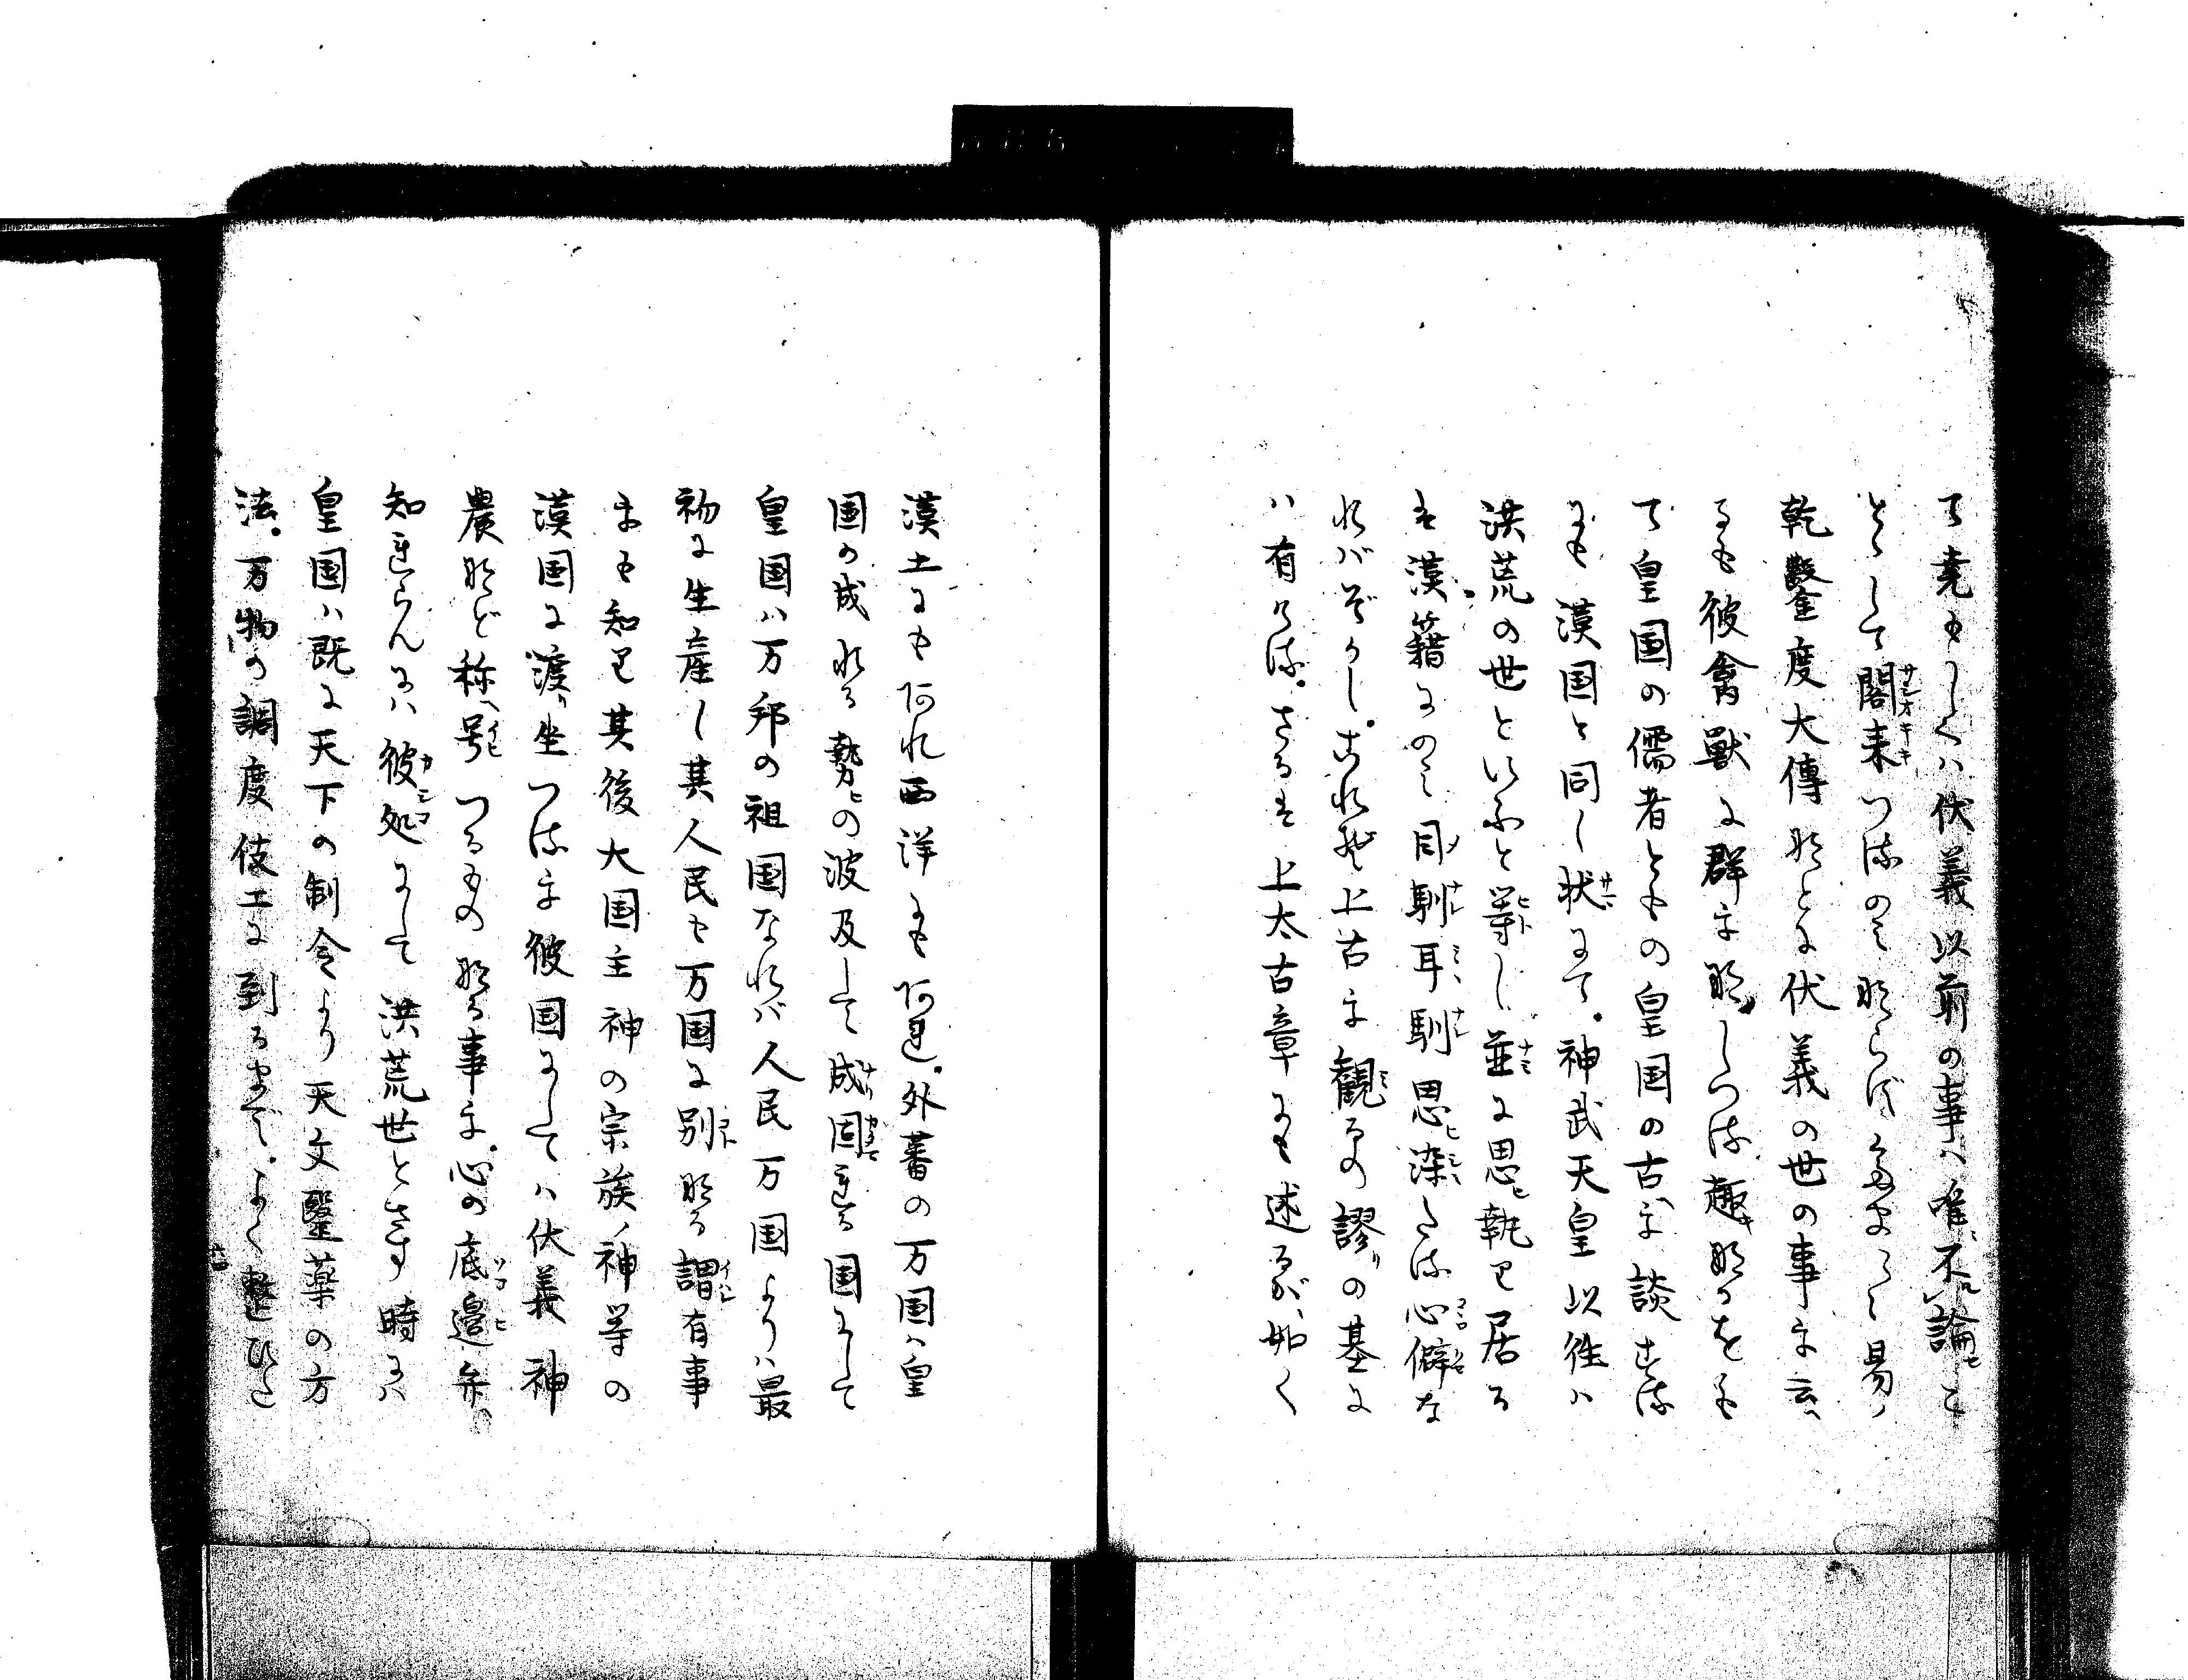 て堯もしくハ伏義以前の事ハ唯不論と
として閣来つるのみならずたまたま易ノ
乾鑿度大傳などに伏義の世の事を云ヘ
るも彼禽獣に群を那しつる趣なるをも
て皇国の儒者ともの皇国の古を談ずる
にも漢国と同し状にて。神武天皇以往ハ
洪荒の世といふと等しㇾ並に思ヒ執り居る
は漢籍にのみ目馴耳馴思染たる心僻な
れバぞかし。これぞ上古を観るの謬りの基に
ハ有ける。さるは上太古章にも述るが如く
漢土にもあれ西洋にもあれ。外蕃の万国ハ皇
国の成れる勢ヒの波及して成固れる国にして
皇国ハ万邦の祖国なれバ人民万国よりハ最
初に生産し其人民も万国に別なる謂有事
をも知らで其後大国主神の宗族ノ神等の
漢国に渡り坐つるを彼国にしてハ伏義神
農など称ヘ号つるものなる事を。心の底邉弁ヘ
知れらんにハ彼処にして洪荒世とさす時にハ
皇国ハ既に天下の制令より天文毉薬の方
法。万物の調度伎工に到るまで。よく整ひた